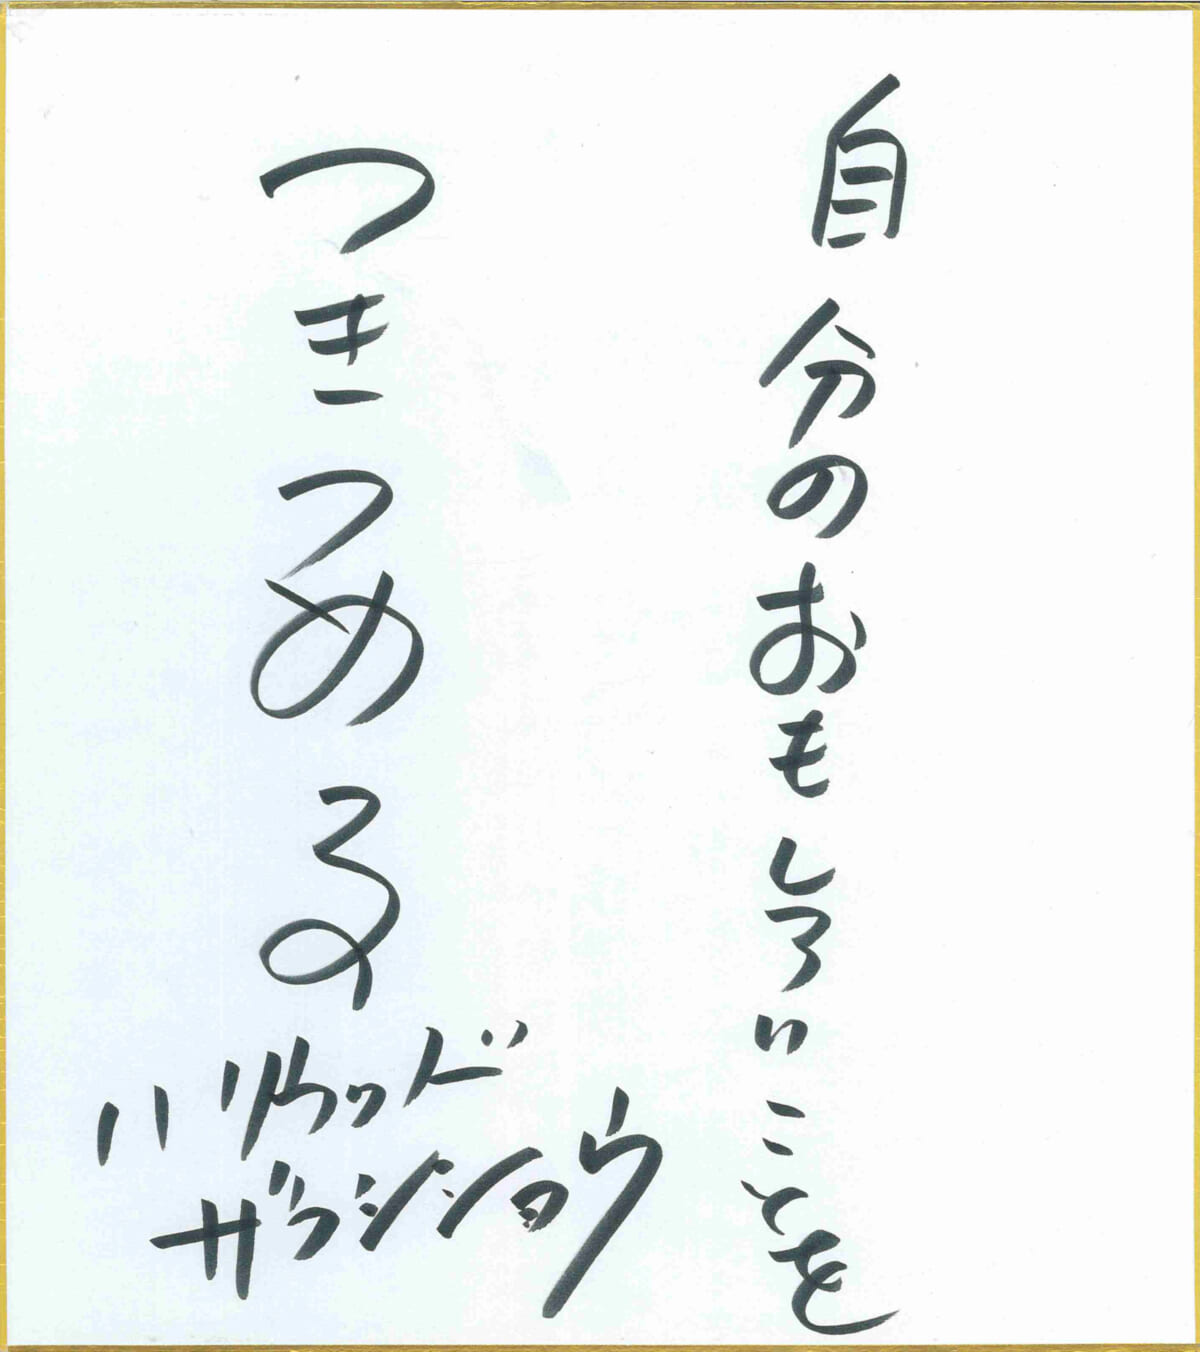 自分のおもしろいことを
つきつめる
ハリウッド
ザコシショウ